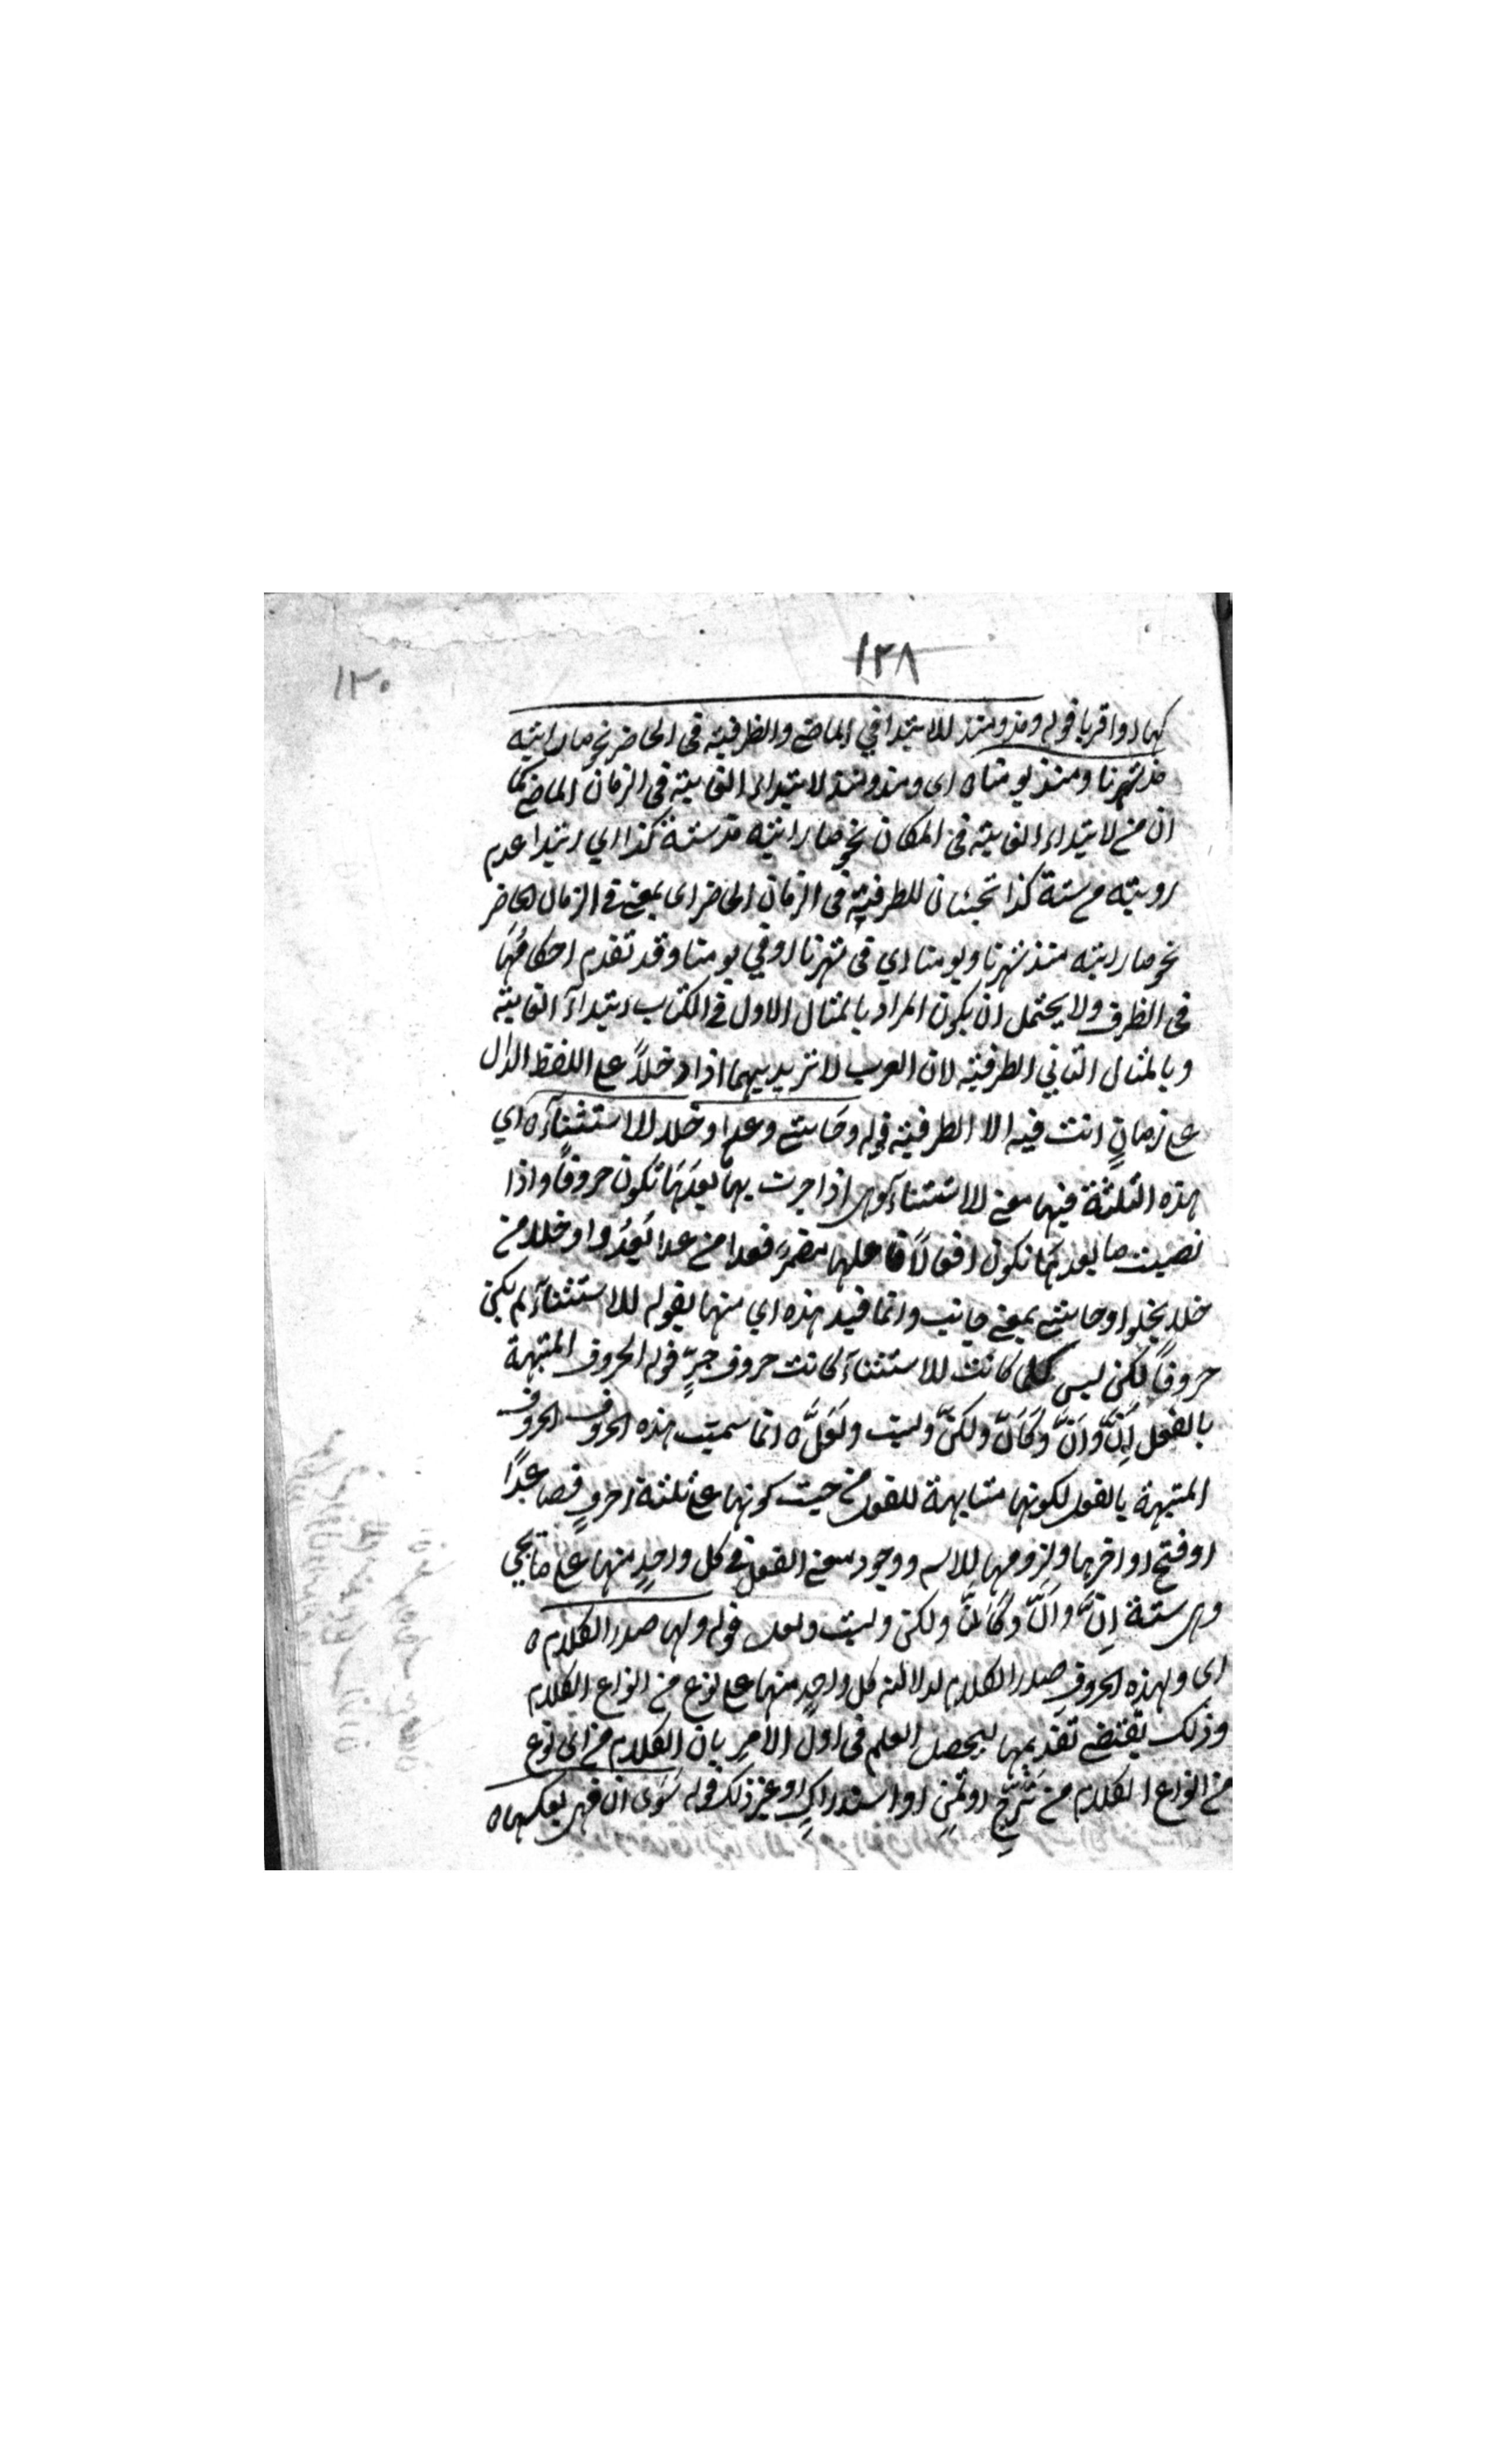 ١٢٨
١٣٠
كهما واقربا قوله ومذ ومنذ للابتدا في الماضي والظرفية في الحاضر نحو ما رايته
مذ شهرنا ومنذ يومنا ه اى ومنذ ومذ لابتداء الغاية في الزمان الماضي كما
ان من لابتداء الغاية في المكان نحو ما رايته مذ سنة كذا اي ابتداء عدم
رويته من سنة كذا تجيئان للظرفية في الزمان الحاضر اى بمعنى في الزمان الحاضر
نحو ما رايته منذ شهرنا ويومنا اي في شهرنا او في يومنا وقد تقدم احكامهما
في الظرف ولا يحتمل ان يكون المراد بالمثال الاول في الكتاب ابتداء الغاية
وبالمثال الثاني الظرفية لان العرب لا تريد بهما اذا دخلا على اللفظ الدال
على زمان انت فيه الا الظرفية قوله وحاشى وعدا وخلا للاستثناء ه اي
هذه الثلثة فيها معنى الاستثناء وهى اذا جرت بها بعدها تكون حروفا واذا
نصبت ما بعدها تكون افعالا فاعلها مضمر فعدا من عدا يعدوا وخلا من
خلا يخلوا وحاشى بمعنى جانب وانما قيد هذه اي منها بقوله للاستثناء لم يكن
حروفا لكن ليس كلما كانت للاستثناء كانت حروف جر قوله الحروف المشبهة
بالفعل ان وان وكان ولكن وليت ولعل ه انما سميت هذه الحروف الحروف
المشبهة بالفعل لكونها مشابهة للفعل من حيث كونها على ثلثة احرف فصاعدا
او فتح اواخرها ولزومها للاسم ووجود معنى الفعل في كل واحد منها على ما يجي
وهى ستة ان وان وكان ولكن وليت ولعل قوله ولها صدر الكلام ه
اى ولهذه الحروف صدر الكلام لدلالته كل واحد منها على نوع من انواع الكلام
وذلك يقتضى تقديمها ليحصل العلم في اول الامر بان الكلام من اى نوع
من انواع الكلام من ترج او تمن او استدراك او غير ذلك قوله سوى ان فهى بعكسها ه